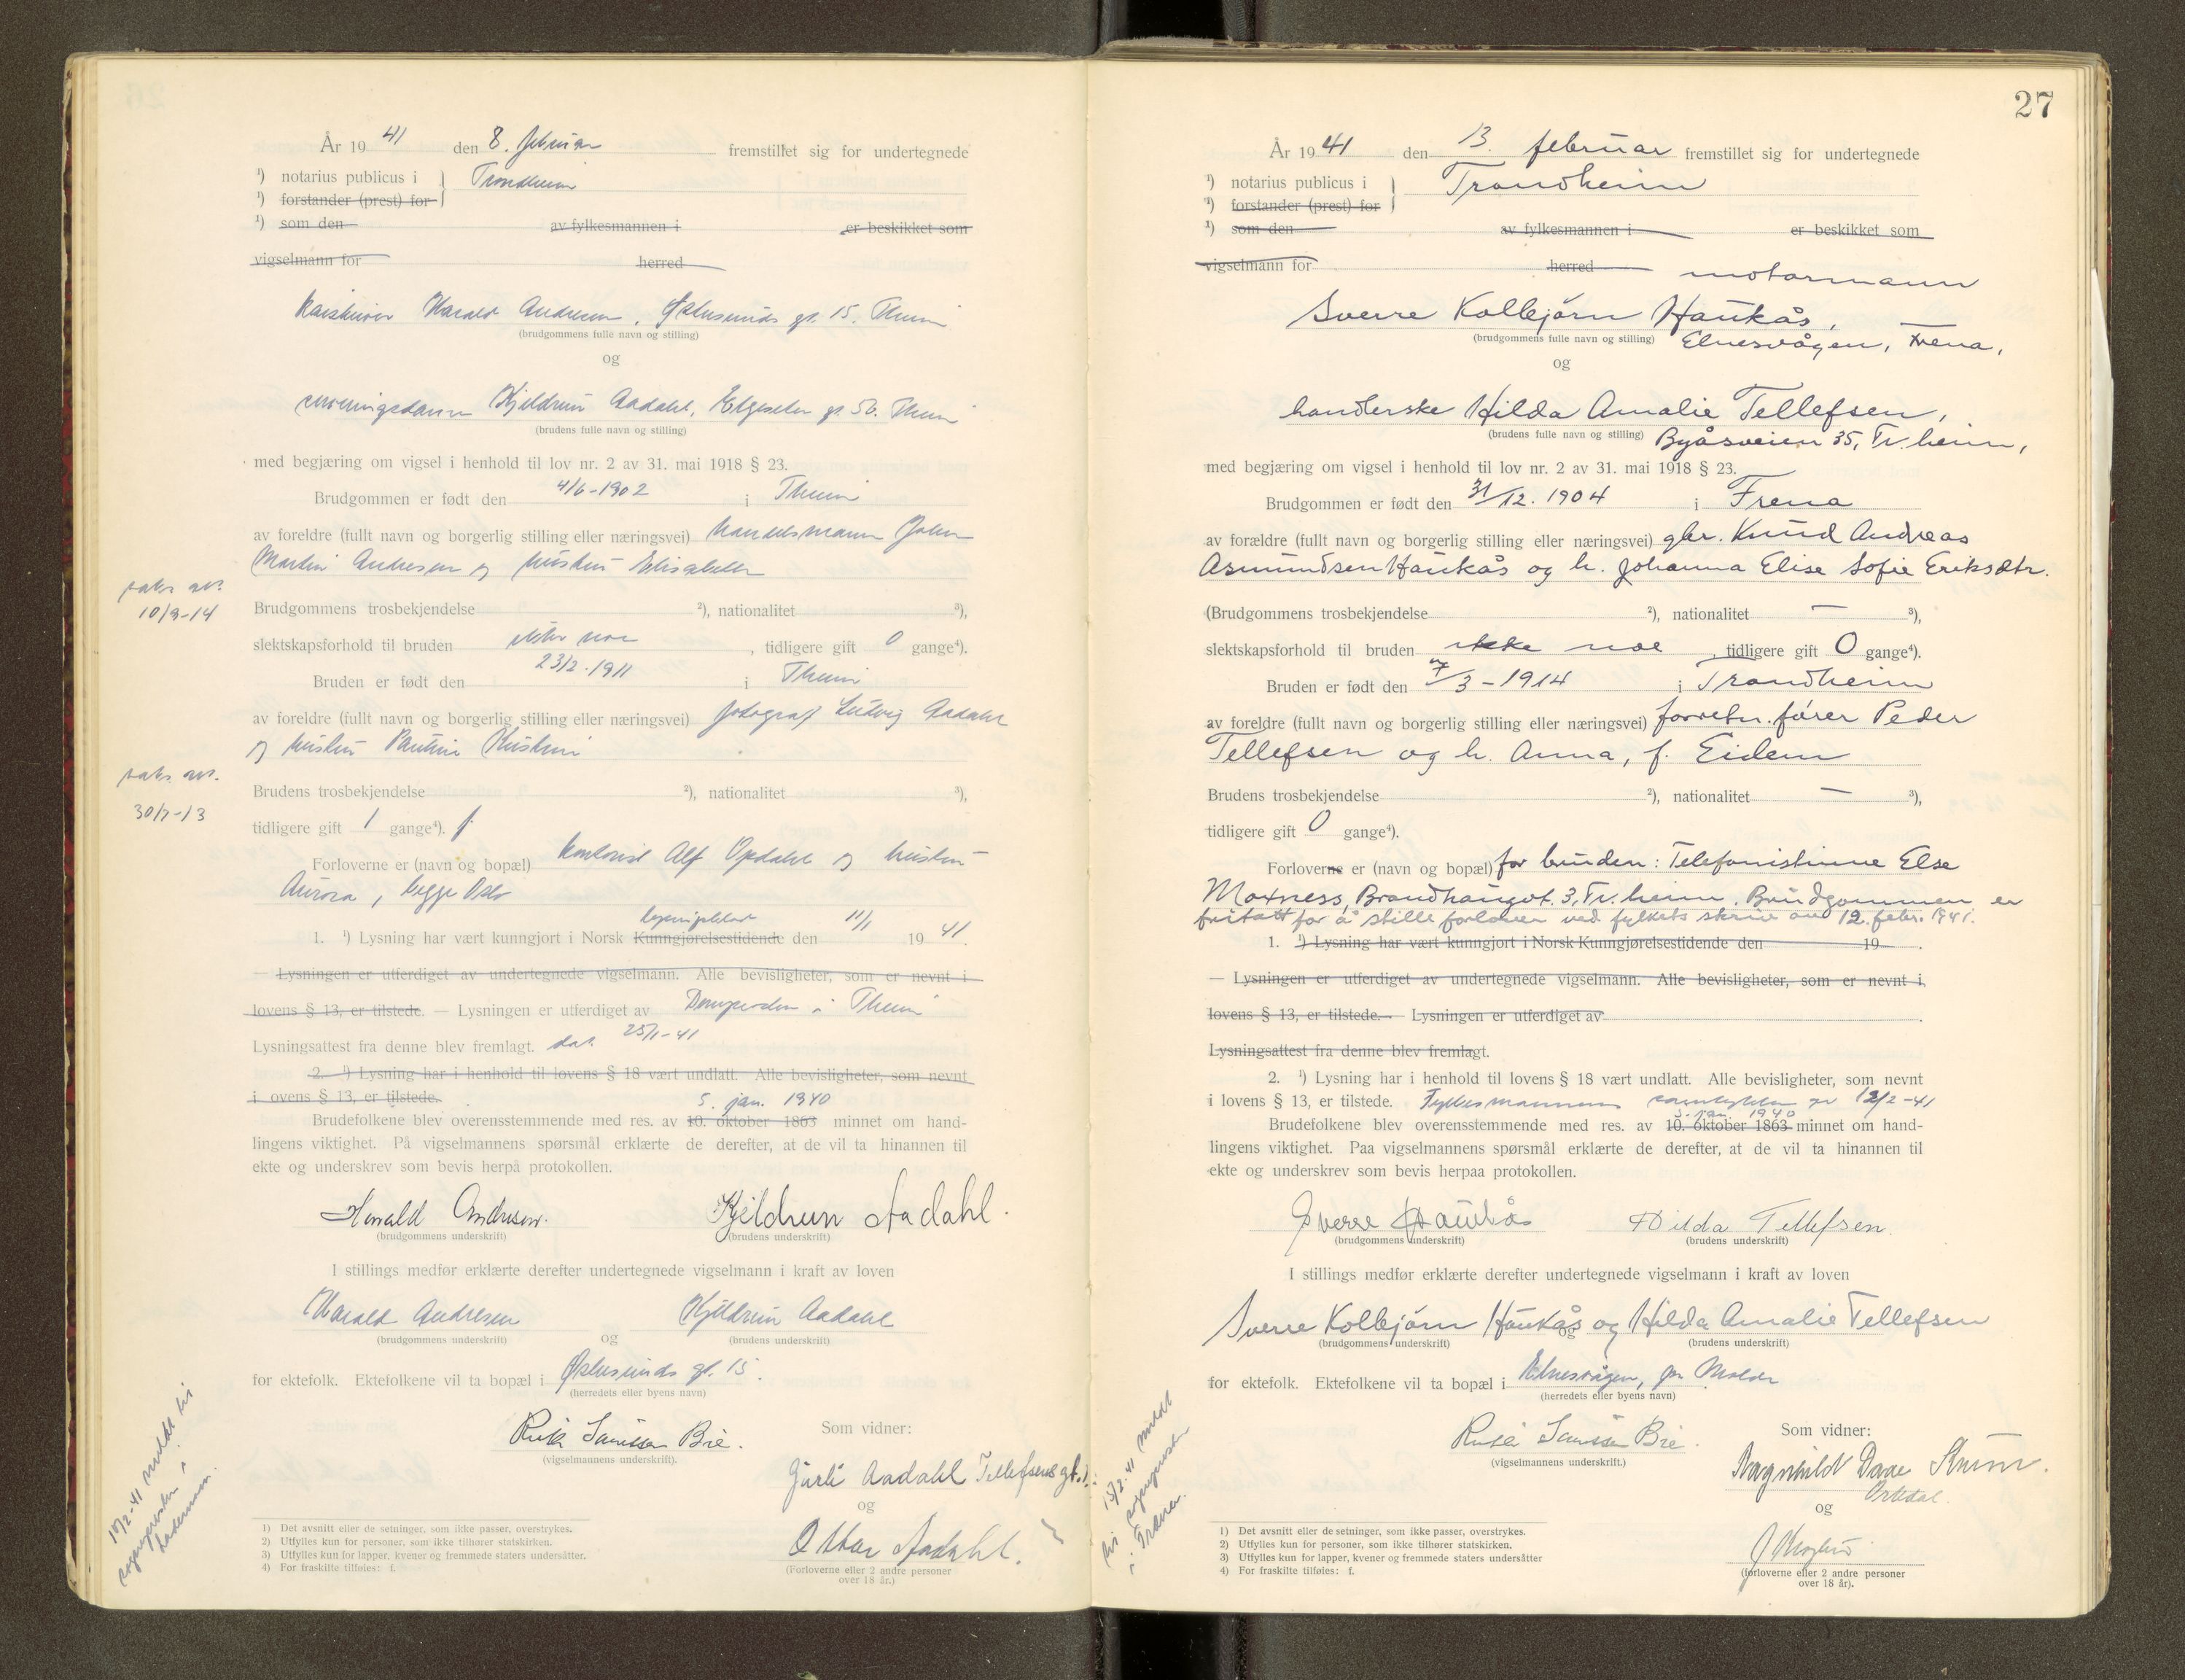 År 1941 den 8. februar fremstillet sig for undertegnede
¹) notarius publicus i Trondheim
¹) forstander (prest) for
¹) som den av fylkesmannen i er beskikket som
vigselmann for herred
Harald Andresen, gt. 15. Theim
(brudgommens fulle navn og stilling)
og
serveringsdame Kjeldrun Aadahl, Elgeseter gt. 56. Theim
(brudens fulle navn og stilling)
med begjæring om vigsel i henhold til lov nr. 2 av 31. mai 1918 § 23.
Brudgommen er født den 4/6-1902 i Theim
av foreldre (fullt navn og borgerlig stilling eller næringsvei) handelsmann John
Martin Andresen og hustru Elisabeth
vaks. att.
10/9-14
Brudgommens trosbekjendelse ²), nationalitet ³),
slektskapsforhold til bruden ikke noe, tidligere gift 0 gange⁴).
Bruden er født den 23/2-1911 i Theim
av foreldre (fullt navn og borgerlig stilling eller næringsvei) fotograf Ludvig Aadahl
og hustru Pauline Kristine
vaks. att.
30/7-13
Brudens trosbekjendelse ²), nationalitet ³),
tidligere gift 1 gange⁴). f.
Forloverne er (navn og bopæl) kontorist Alf Opdahl og hustru
Aurora, begge Oslo
lysningsblad
1. ¹) Lysning har vært kunngjort i Norsk Kunngjørelsestidende den 11/1 1941.
— Lysningen er utferdiget av undertegnede vigselmann. Alle bevisligheter, som er nevnt i
lovens § 13, er tilstede. — Lysningen er utferdiget av Domprosten i Theim
Lysningsattest fra denne blev fremlagt. dat. 25/1-41
2. ¹) Lysning har i henhold til lovens § 18 vært undlatt. Alle bevisligheter, som nevnt
i ovens § 13, er tilstede.
5. jan. 1940
Brudefolkene blev overensstemmende med res. av 10. oktober 1863 minnet om hand-
lingens viktighet. På vigselmannens spørsmål erklærte de derefter, at de vil ta hinannen til
ekte og underskrev som bevis herpå protokollen.
Harald Andresen. Kjeldrun Aadahl.
(brudgommens underskrift) (brudens underskrift)
I stillings medfør erklærte derefter undertegnede vigselmann i kraft av loven
Harald Andresen og Kjeldrun Aadahl
(brudgommens underskrift) (brudens underskrift)
for ektefolk. Ektefolkene vil ta bopæl i gt. 15.
(herredets eller byens navn)
Bie.
(vigselmannens underskrift).
Som vidner:
Gurli Aadahl Tellefsens gt. 1.
og
Ottar Aadahl.
(Forloverne eller 2 andre personer
over 18 år.)
/2-41 meldt til
sognepresten i
Lademoen.
1) Det avsnitt eller de setninger, som ikke passer, overstrykes.
2) Utfylles kun for personer, som ikke tilhører statskirken.
3) Utfylles kun for lapper, kvener og fremmede staters undersåtter.
4) For fraskilte tilføies: f.
27
År 1941 den 13. februar fremstillet sig for undertegnede
¹) notarius publicus i Trondheim
¹) forstander (prest) for
¹) som den av fylkesmannen i er beskikket som
vigselmann for herred
motormann
Sverre Kolbjørn Haukås,
(brudgommens fulle navn og stilling) Elnesvågen, Fræna,
og
handlerske Hilda Amalie Tellefsen,
(brudens fulle navn og stilling) Byåsveien 35, Tr.heim,
med begjæring om vigsel i henhold til lov nr. 2 av 31. mai 1918 § 23.
Brudgommen er født den 31/12. 1904 i Frena
av forældre (fullt navn og borgerlig stilling eller næringsvei) gbr. Knud Andreas
Asmundsen Haukås og h. Johanna Elise Sofie Eriksdtr.
(Brudgommens trosbekjendelse ²), nationalitet — ³),
slektskapsforhold til bruden ikke noe, tidligere gift 0 gange⁴).
Bruden er født den 7/3-1914 i Trondheim
av foreldre (fullt navn og borgerlig stilling eller næringsvei) forretn.fører Peder
Tellefsen og h. Anna, f. Eidem
Brudens trosbekjendelse ²), nationalitet — ³),
tidligere gift 0 gange⁴).
Forloverne er (navn og bopæl) for bruden: Telefonistinne Else
Moxness, Brandhaugvt. 3, Tr.heim. Brudgommen er
fritatt for å stille forlover ved fylkets skriv av 12. febr. 1941.
1. ¹) Lysning har vært kunngjort i Norsk Kunngjørelsestidende den 19 .
— Lysningen er utferdiget av undertegnede vigselmann. Alle bevisligheter, som er nevnt i
lovens § 13, er tilstede. — Lysningen er utferdiget av .
Lysningsattest fra denne blev fremlagt.
2. ¹) Lysning har i henhold til lovens § 18 vært undlatt. Alle bevisligheter, som nevnt
i lovens § 13, er tilstede. Fylkesmannens samtykke av 12/2-41
5. jan. 1940
Brudefolkene blev overensstemmende med res. av 10. oktober 1863 minnet om hand-
lingens viktighet. Paa vigselmannens spørsmål erklærte de derefter, at de vil ta hinannen til
ekte og underskrev som bevis herpaa protokollen.
Sverre Haukås Hilda Tellefsen.
(brudgommens underskrift) (brudens underskrift)
I stillings medfør erklærte derefter undertegnede vigselmann i kraft av loven
Sverre Kolbjørn Haukås og Hilda Amalie Tellefsen
(brudgommens underskrift) og (brudens underskrift)
for ektefolk. Ektefolkene vil ta bopæl i Elnesvågen, pr Molde
(herredets eller byens navn)
Bie.
(vigselmannens underskrift.)
Som vidner:
Ragnhild
Orkdal.
og
(forloverne eller 2 andre personer
over 18 år).
15/2-41 meldt
til sognepresten
i Fræna.
1) Det avsnitt eller de setninger, som ikke passer, overstrykes.
2) Utfylles kun for personer, som ikke tilhører statskirken.
3) Utfylles kun for lapper, kvener og fremmede staters undersåtter
4) For fraskilte tilføies: f.